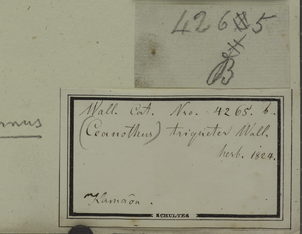 4265
B
rnus
Wall. Cat. Nro. 4265. b.
(Ceanothus) triqueter Wall.
herb. 1824.
Kamaon.
SCHULTES